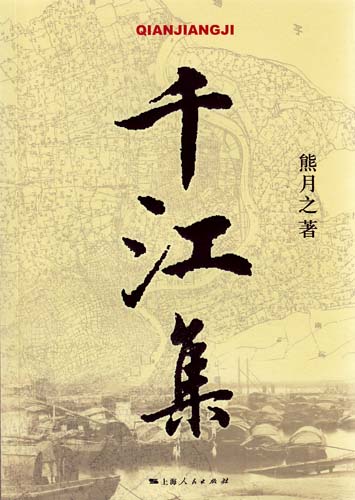 QIANJIANGJI
千江集
熊月之 著
上海人民出版社